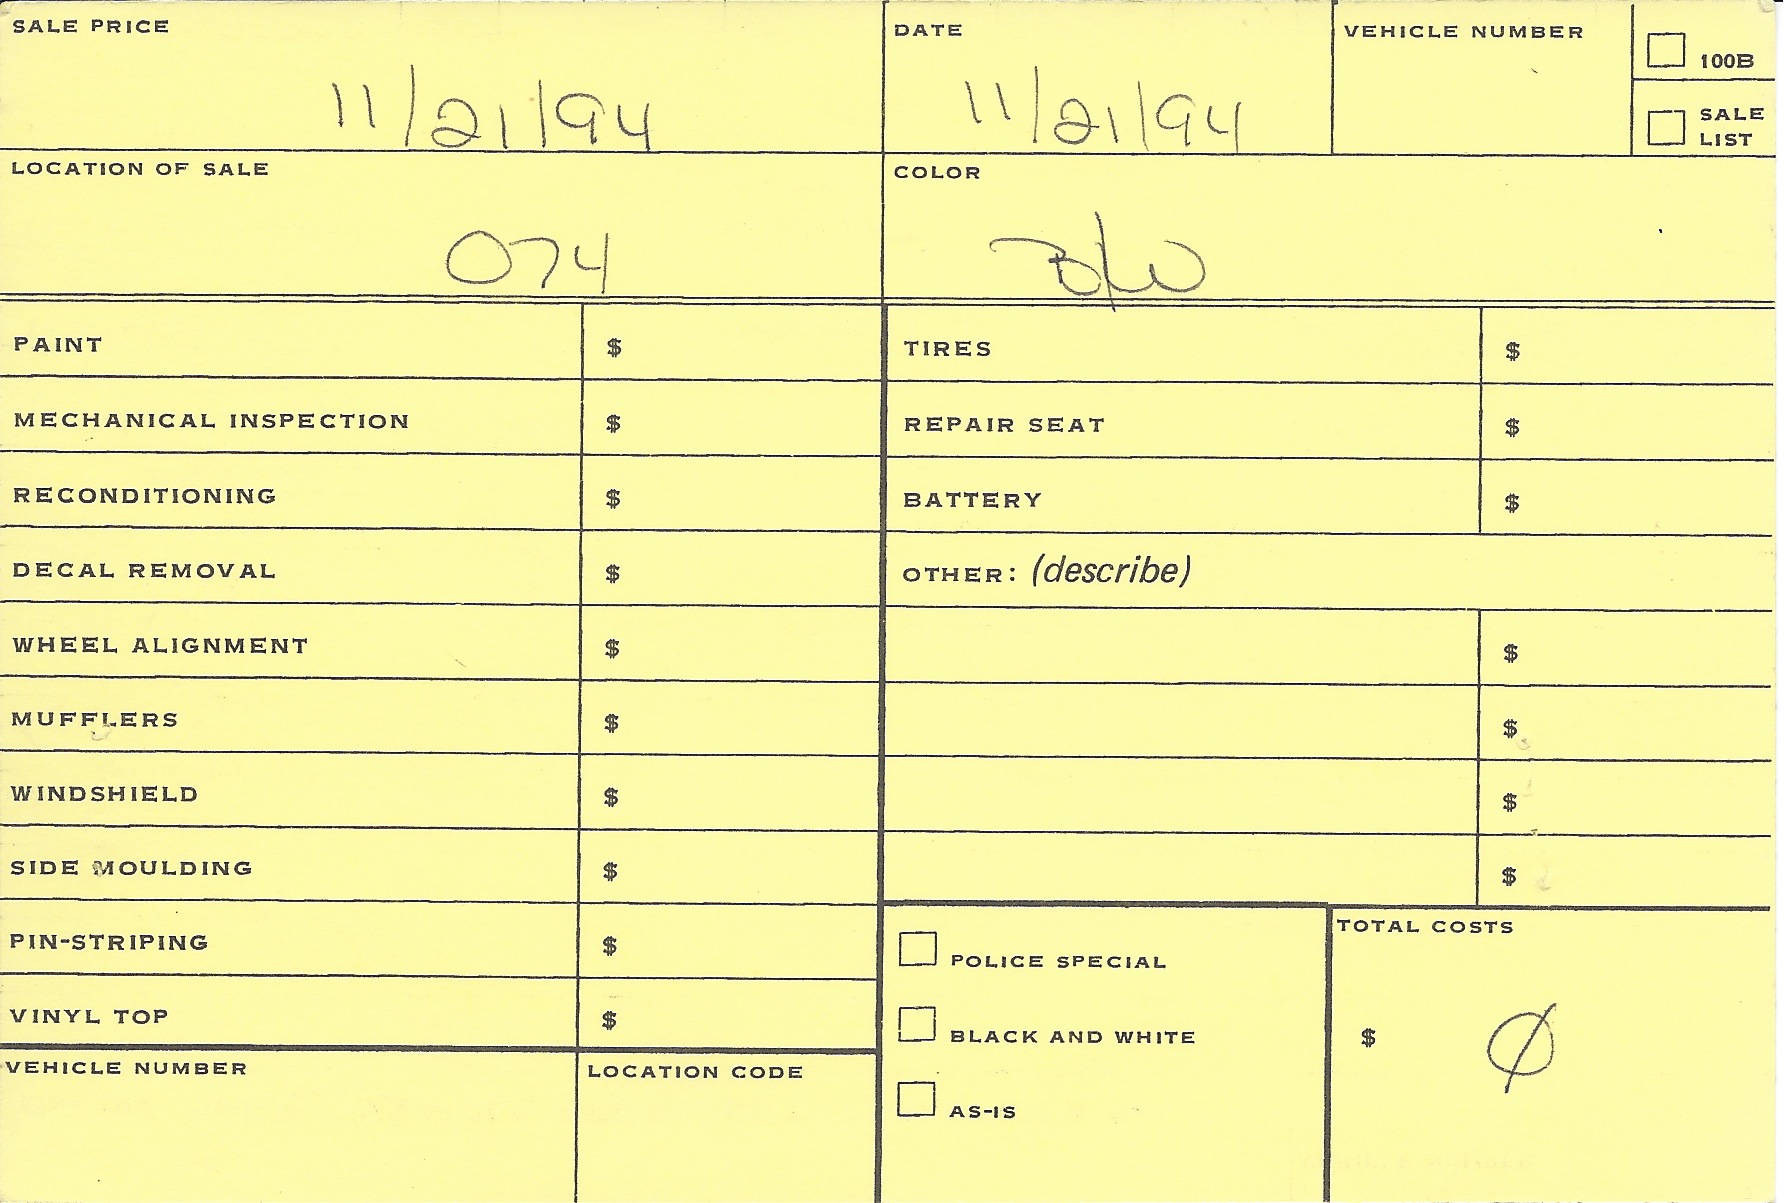 SALE PRICE
11/21/94
DATE
11/21/94
VEHICLE NUMBER
100B
SALE
LIST
LOCATION OF SALE
074
COLOR
Blu
PAINT $
MECHANICAL INSPECTION $
RECONDITIONING $
DECAL REMOVAL $
WHEEL ALIGNMENT $
MUFFLERS $
WINDSHIELD $
SIDE MOULDING $
PIN-STRIPING $
VINYL TOP $
VEHICLE NUMBER
LOCATION CODE
TIRES $
REPAIR SEAT $
BATTERY $
OTHER: (describe)
$
$
$
$
POLICE SPECIAL
BLACK AND WHITE
AS-IS
TOTAL COSTS
$ Ø